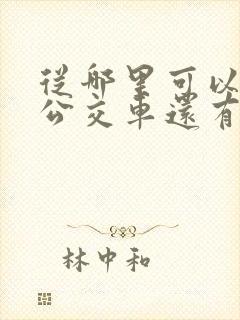 從哪里可以
公交車還有
林中和